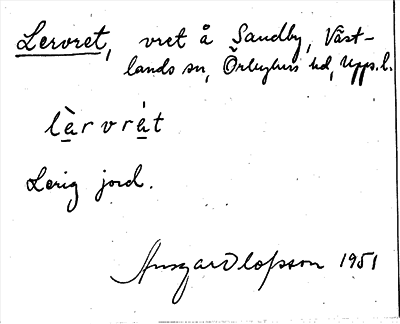 Lervret, vret å Sandby, Väst-
lands sn, Örbyhus hd, Upps. l.
lè̠rvrá̠t
Lerig jord.
Ansgar Olofsson 1951